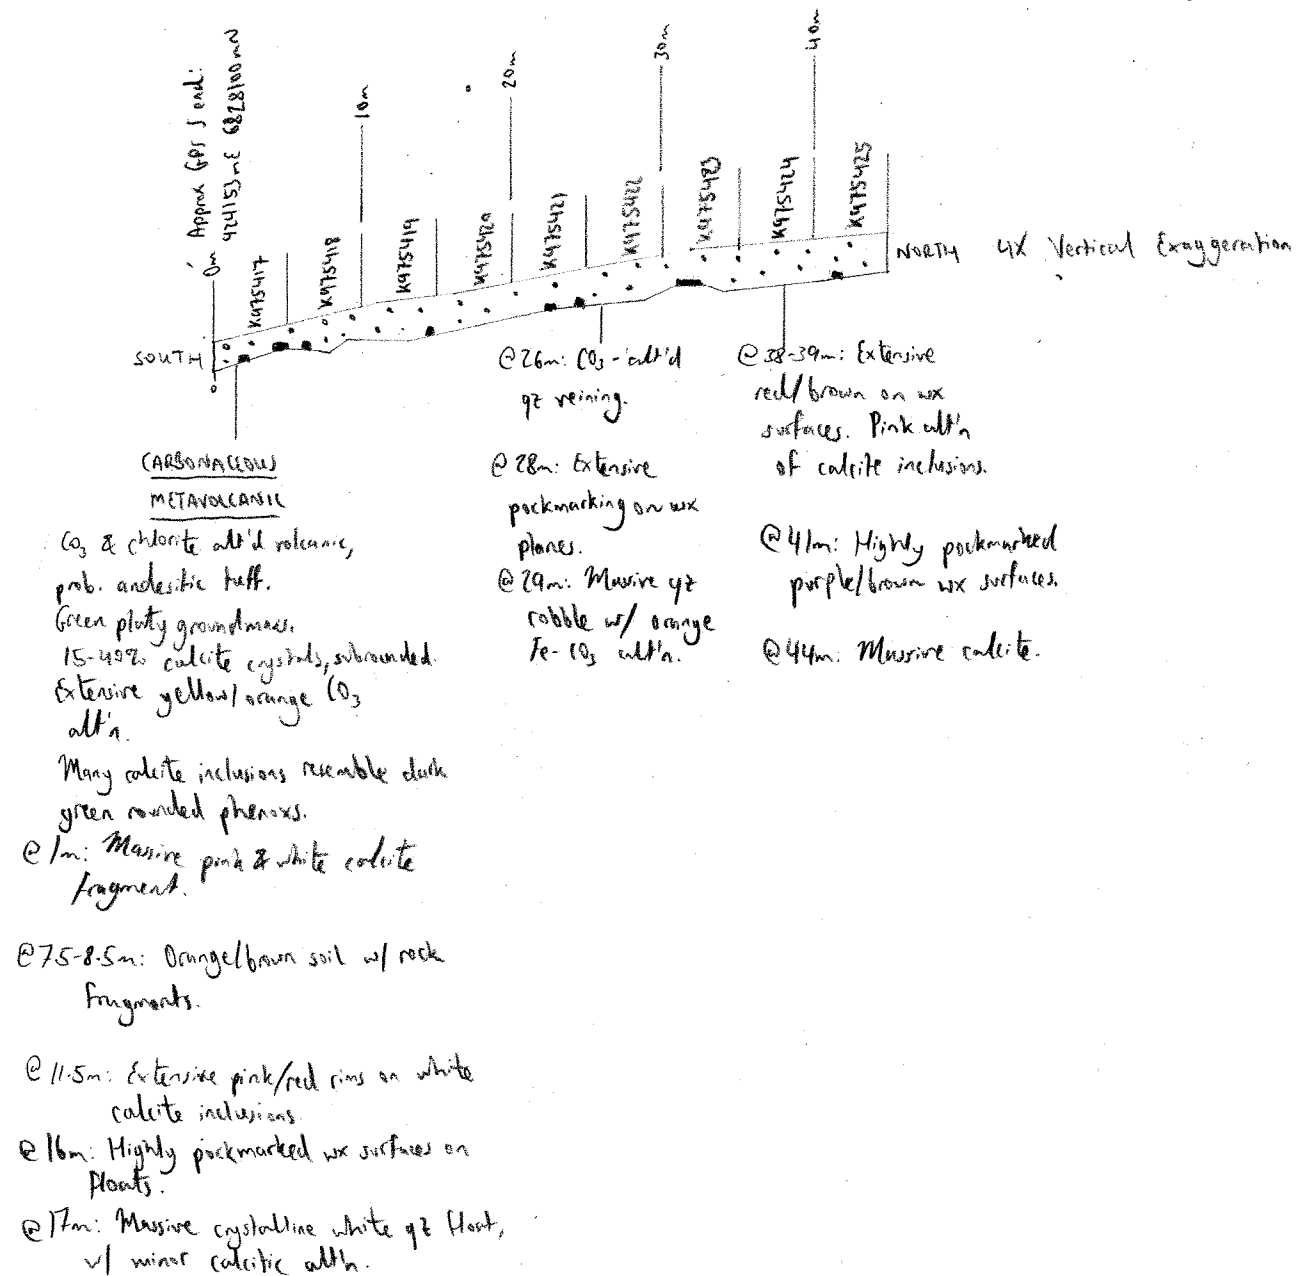 Approx GPS S end:
424153mE 6828100mN
0m
10m
20m
30m
40m
K975417
K975418
K975419
K975420
K975421
K975422
K975423
K975424
K975425
SOUTH
NORTH 4X Vertical Exaggeration
CARBONACEOUS
METAVOLCANIC
CO3 & chlorite alt'd volcanic,
prob. andesitic tuff.
Green platy groundmass.
15-40% calcite crystals, subrounded.
Extensive yellow/orange CO3
alt'n.
Many calcite inclusions resemble dark
green rounded phenoxs.
@ 1m: Massive pink & white calcite
fragment.
@ 7.5-8.5m: Orange/brown soil w/ rock
fragments.
@ 11.5m: Extensive pink/red rims on white
calcite inclusions.
@ 16m: Highly pockmarked wx surfaces on
floats.
@ 17m: Massive crystalline white qz float,
w/ minor calcitic alt'n.
@ 26m: CO3-alt'd
qz veining.
@ 28m: Extensive
pockmarking on wx
planes.
@ 29m: Massive qz
cobble w/ orange
Fe-CO3 alt'n.
@ 38-39m: Extensive
red/brown on wx
surfaces. Pink alt'n
of calcite inclusions.
@ 41m: Highly pockmarked
purple/brown wx surfaces.
@ 44m: Massive calcite.